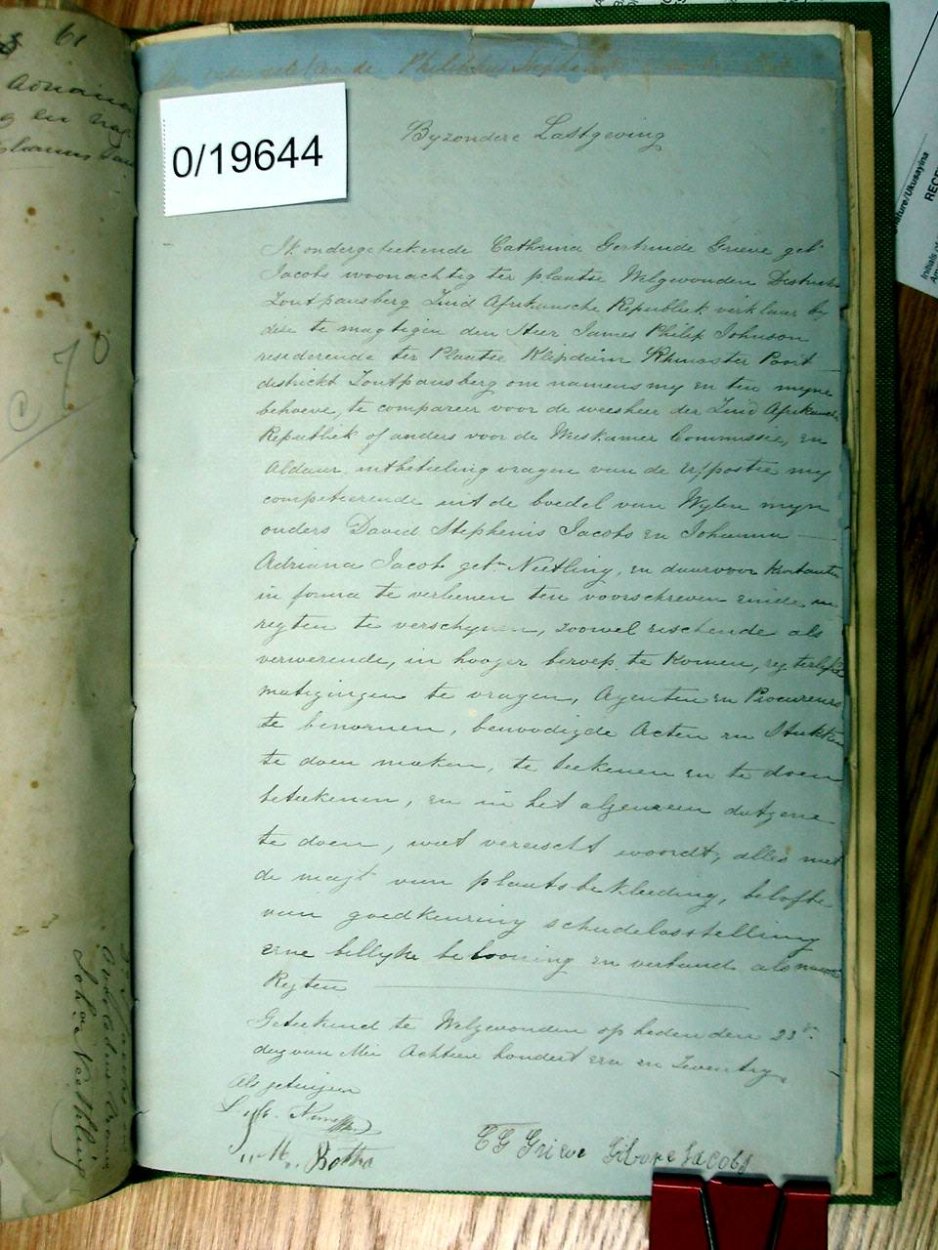 61
Adriana
en
0/19644
Philippus Stephanus
Byzondere Lastgeving
Ik ondergeteekende Cathrina Gertruide Grieve geb
Jacobs woonachtig ter plaatse Welgevonden Districkt
Zoutpansberg Zuid Afrikansche Republiek verklaar by
dese te magtigen den Heer James Philip Johnson
resideerende ter Plaatse Klipdam Rhinoster Poort
districkt Zoutpansberg om namens my en ten mynen
behoeve, te compareer voor de weesheer der Zuid Afrikansche
Republiek of anders voor de Weeskamer Commissie, en
aldaar, uitbetaling vragen van de erfpostie my
competeerende uit de boedel van Wylen myn
ouders David Stephenis Jacobs en Johanna
Adriana Jacobs geb Neetling, en daarvoor kwitantie
in forma te verleenen ten voorschreven einde, in
regten te verschynen, zoowel eischende als
verwerende, in hooger beroep te komen, regterlyke
matigingen te vragen, Agenten en Procureurs
te benoemen, benoodigde Acten en Stukken
te doen maken, te teekenen en te doen
beteekenen, en in het algemeen datgene
te doen, wat vereischt woordt, alles met
de magt van plaatsbekleeding, belofte
van goedkeuring schadelosstelling
eene billyke belooning en verband als naar
Regten
Geteekend te Welgevonden op heden den 23
dag van Mei Achtien hondert een en Zeventig
Als getuigen
Botha
C G Grieve Gibore Jacobs
Joh. Neethling
RECE
ature/Ukusayina
Initials